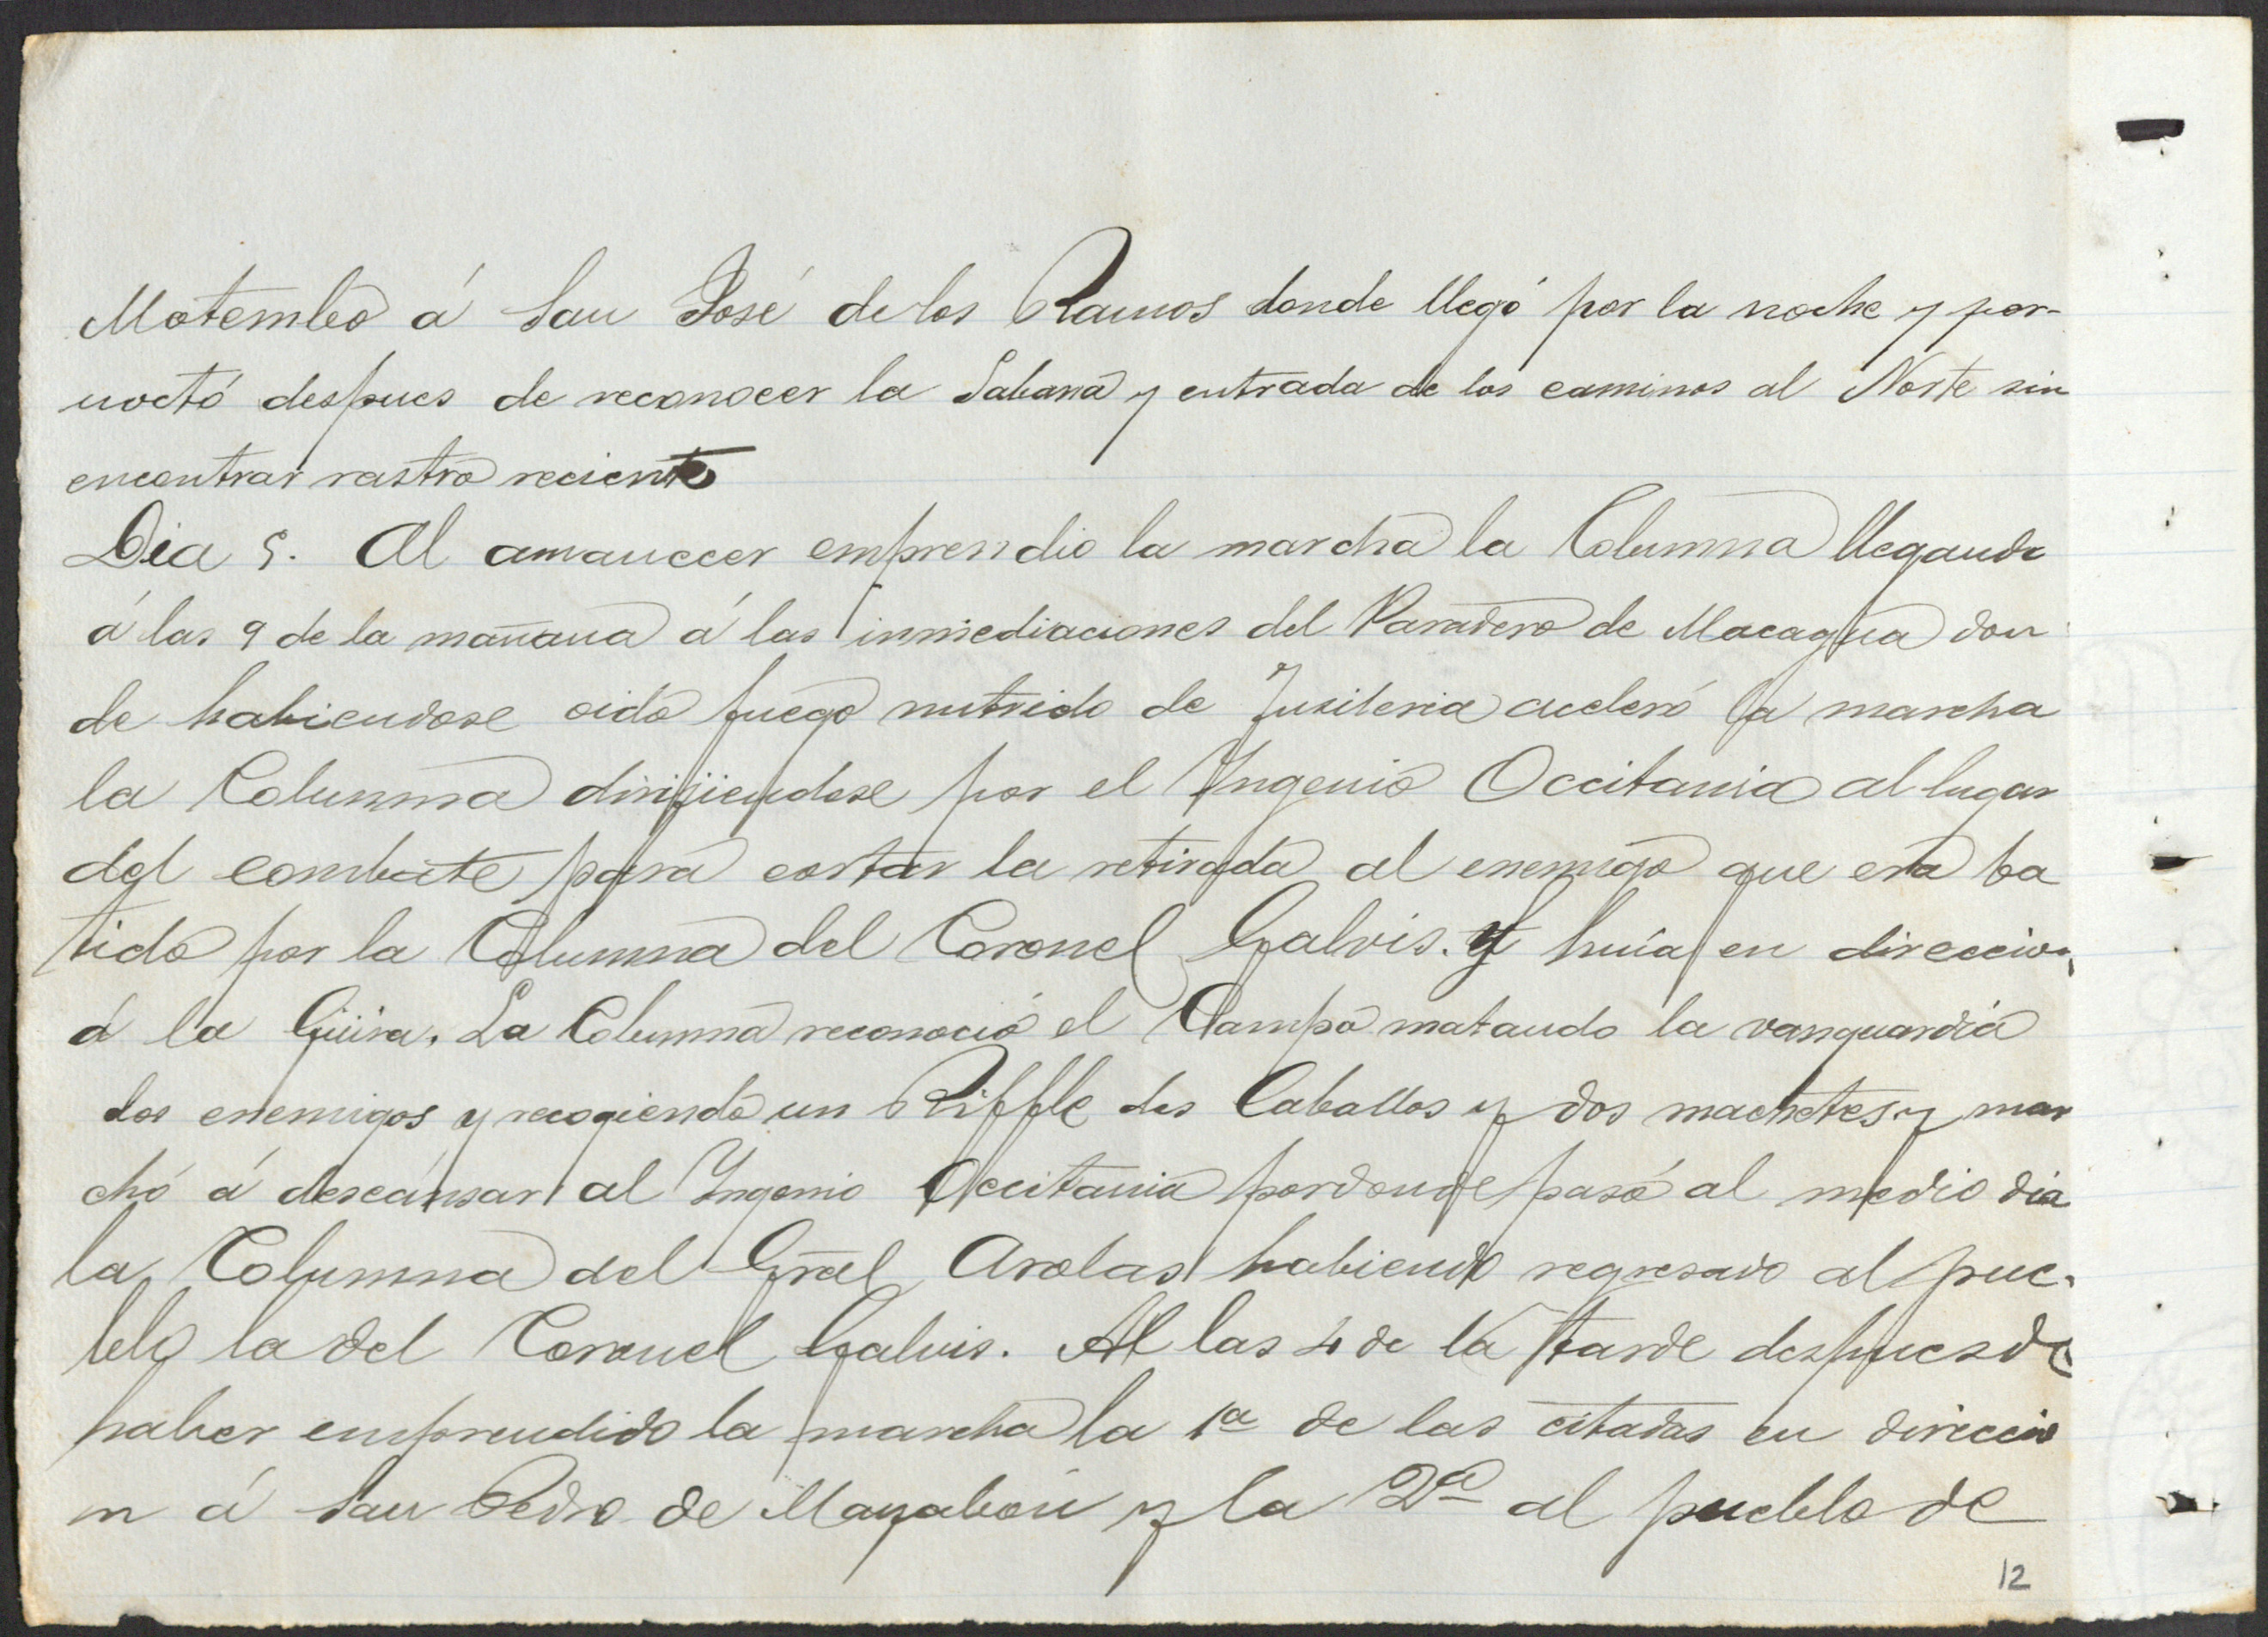 Motembo á San José de los Ramos donde llegó por la noche y per-
noctó despues de reconocer la Sabana y entrada de los caminos al Norte sin
encontrar rastro reciente
Dia 5. Al amanecer emprendio la marcha la Columna llegando
á las 9 de la mañana á las inmediaciones del Paradero de Macagua don
de habiendose oido fuego nutrido de fusileria aceleró la marcha
la Columna dirijiendose por el Yngenio Occitania al lugar
del combate para cortar la retirada al enemigo que era ba
tido por la Columna del Coronel Galvis. y huía en direccion
á la Güira. La Columna reconoció el Campo matando la vanguardia
dos enemigos y recogiendo un Riffle dos Caballos y dos machetes y mar
chó á descansar al Yngenio Occitania por donde pasó al medio dia
la Columna del Gral Arolas habiendo regresado al pue-
blo la del Coronel Galvis. Al las 4 de la tarde despues de
haber emprendido la marcha la 1a de las citadas en direccio
n á San Pedro de Mayabon y la 2a al pueblo de
12